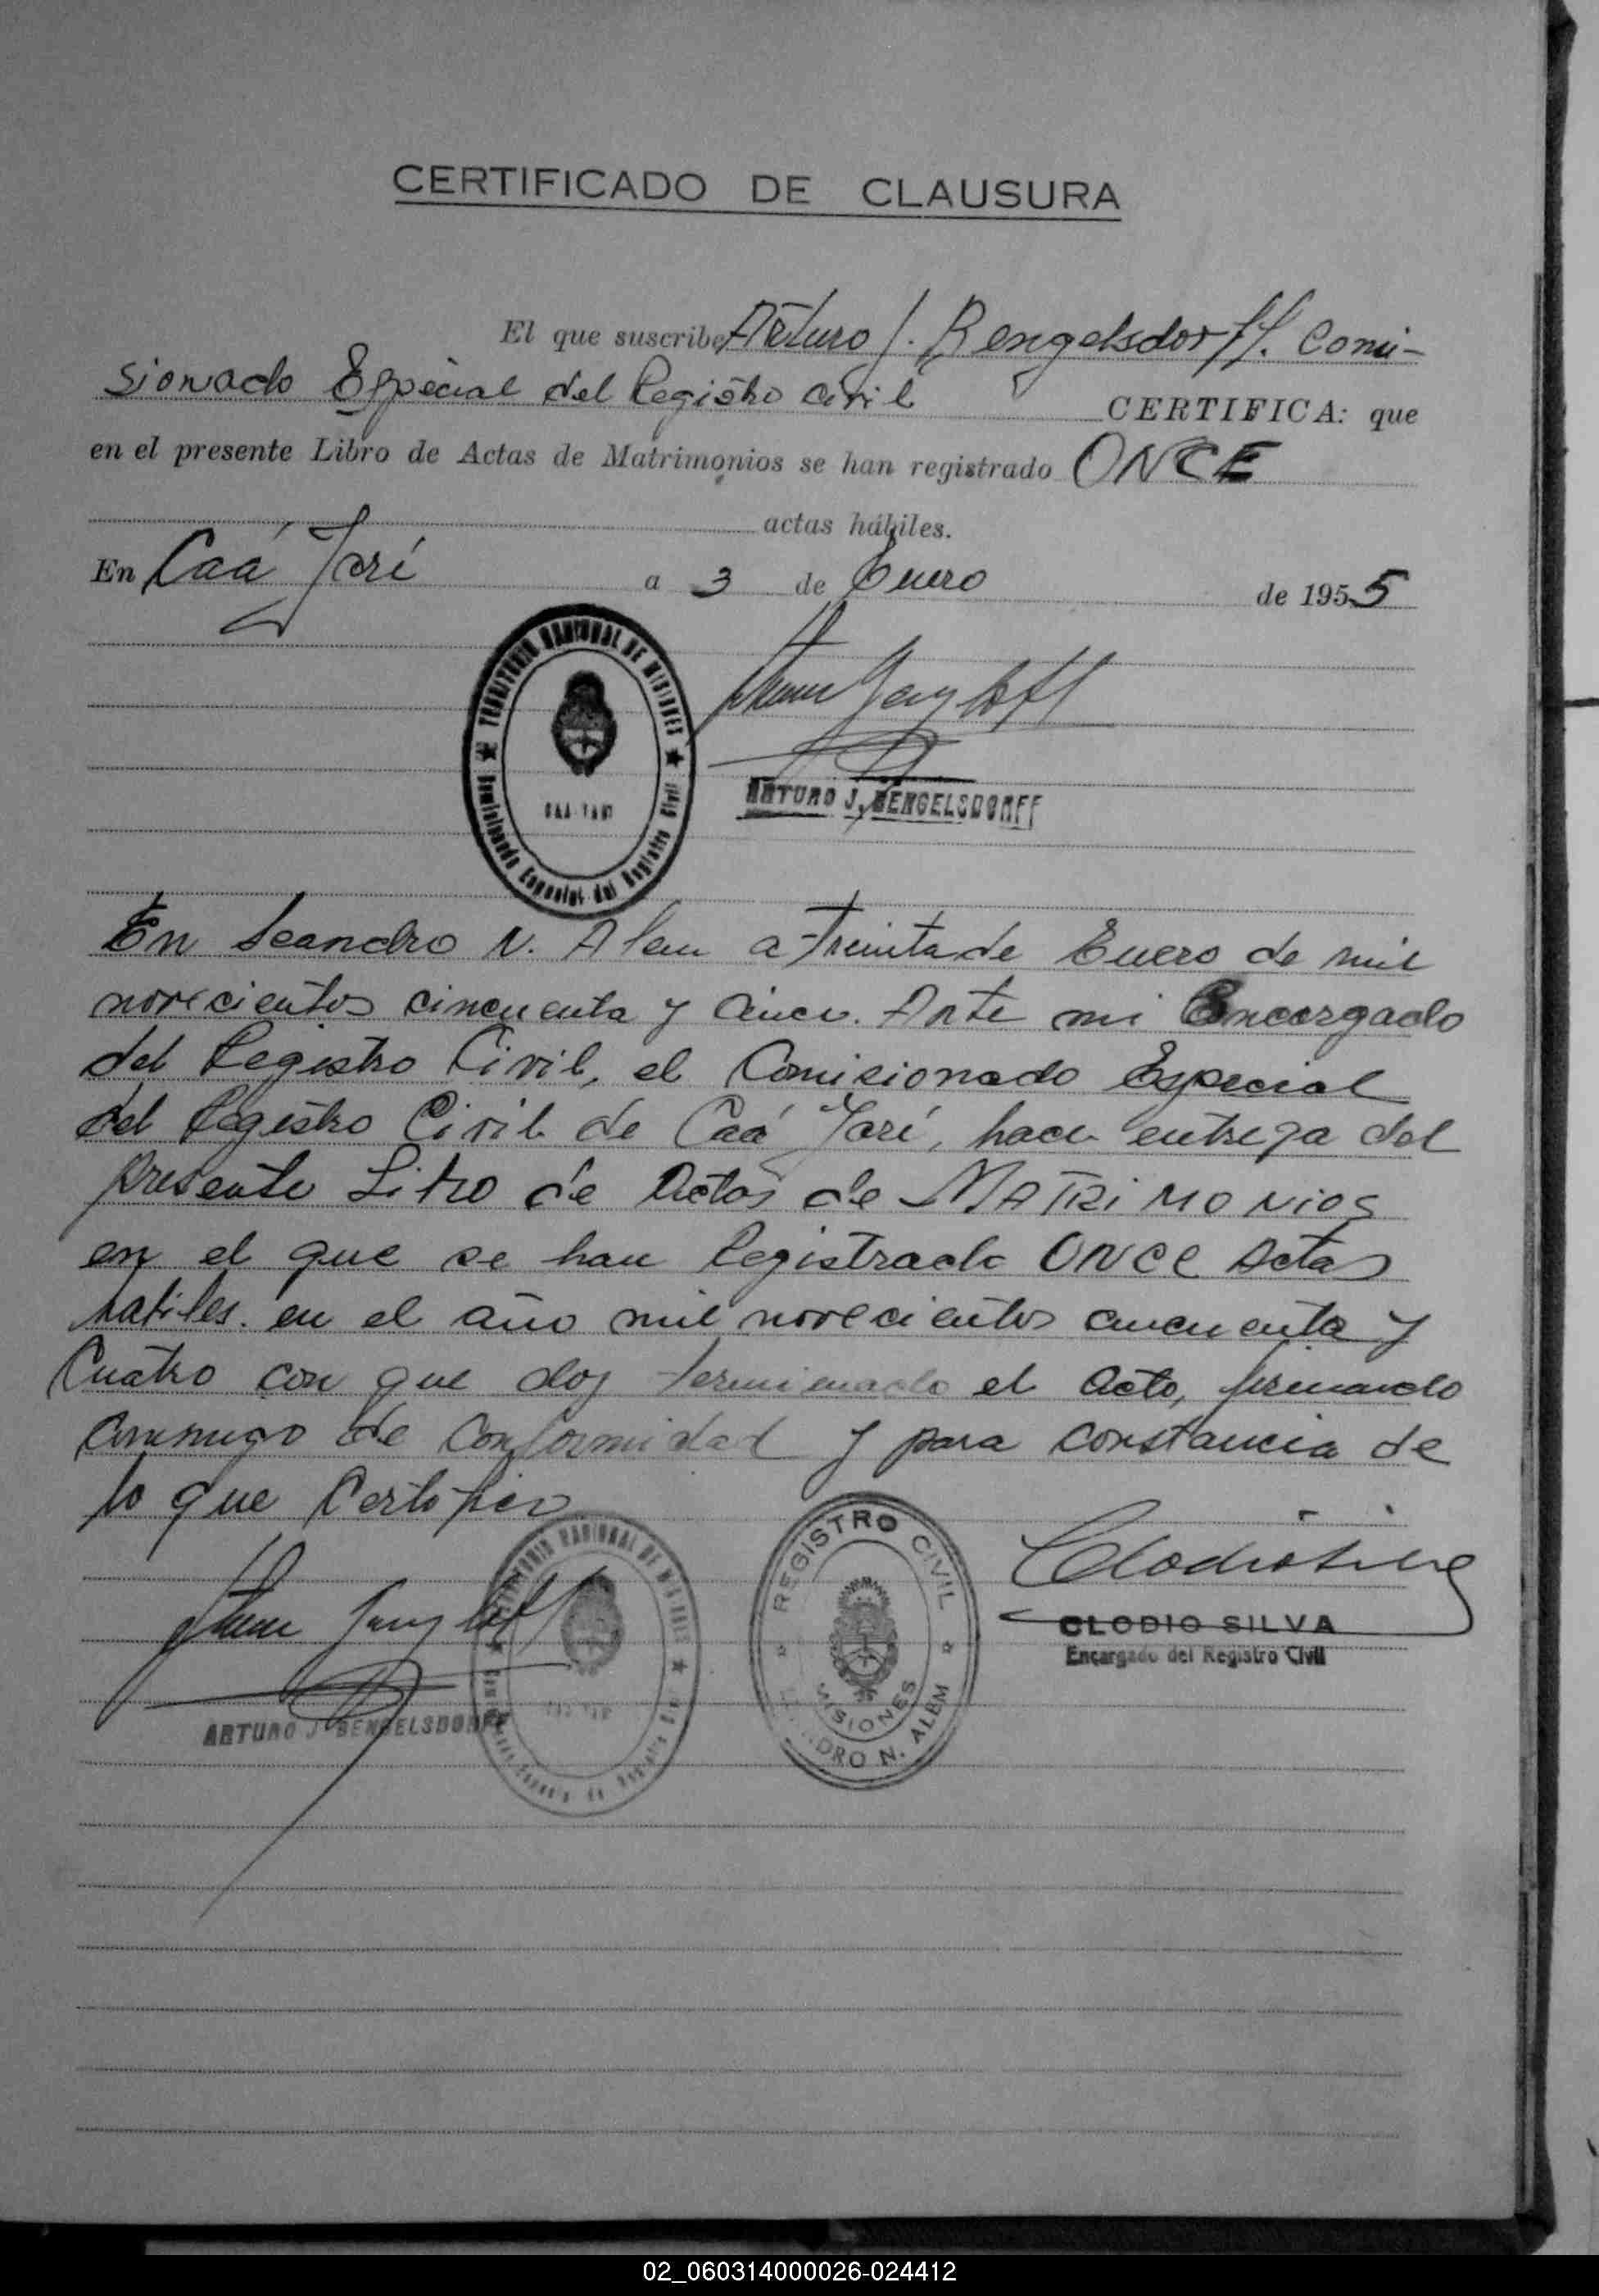 CERTIFICADO DE CLAUSURA
El que suscribe Arturo J. Bengelsdorff. Comi-
sionado Especial del Registro Civil CERTIFICA: que
en el presente Libro de Actas de Matrimonios se han registrado ONCE
actas hábiles.
En Caá Yarí a 3 de Enero de 1955
TERRITORIO NACIONAL DE MISIONES
CAA-YARI
Comisionado Especial del Registro Civil
ARTURO J. BENGELSDORFF
En Leandro N. Alem a treinta de Enero de mil
novecientos cincuenta y cinco. Ante mi Encargado
del Registro Civil, el Comisionado Especial
del Registro Civil de Caá Yarí, hace entrega del
presente Libro de Actas de MATRIMONIOS
en el que se han Registrado ONCE Actas
habiles. en el año mil novecientos cincuenta y
Cuatro con que doy terminado el acto, firmando
conmigo de Conformidad y para constancia de
lo que Certifico
TERRITORIO NACIONAL DE MISIONES
REGISTRO CIVIL
MISIONES
N. ALEM
Clodio Silva
CLODIO SILVA
Encargado del Registro Civil
ARTURO J. BENGELSDORFF
02_060314000026-024412